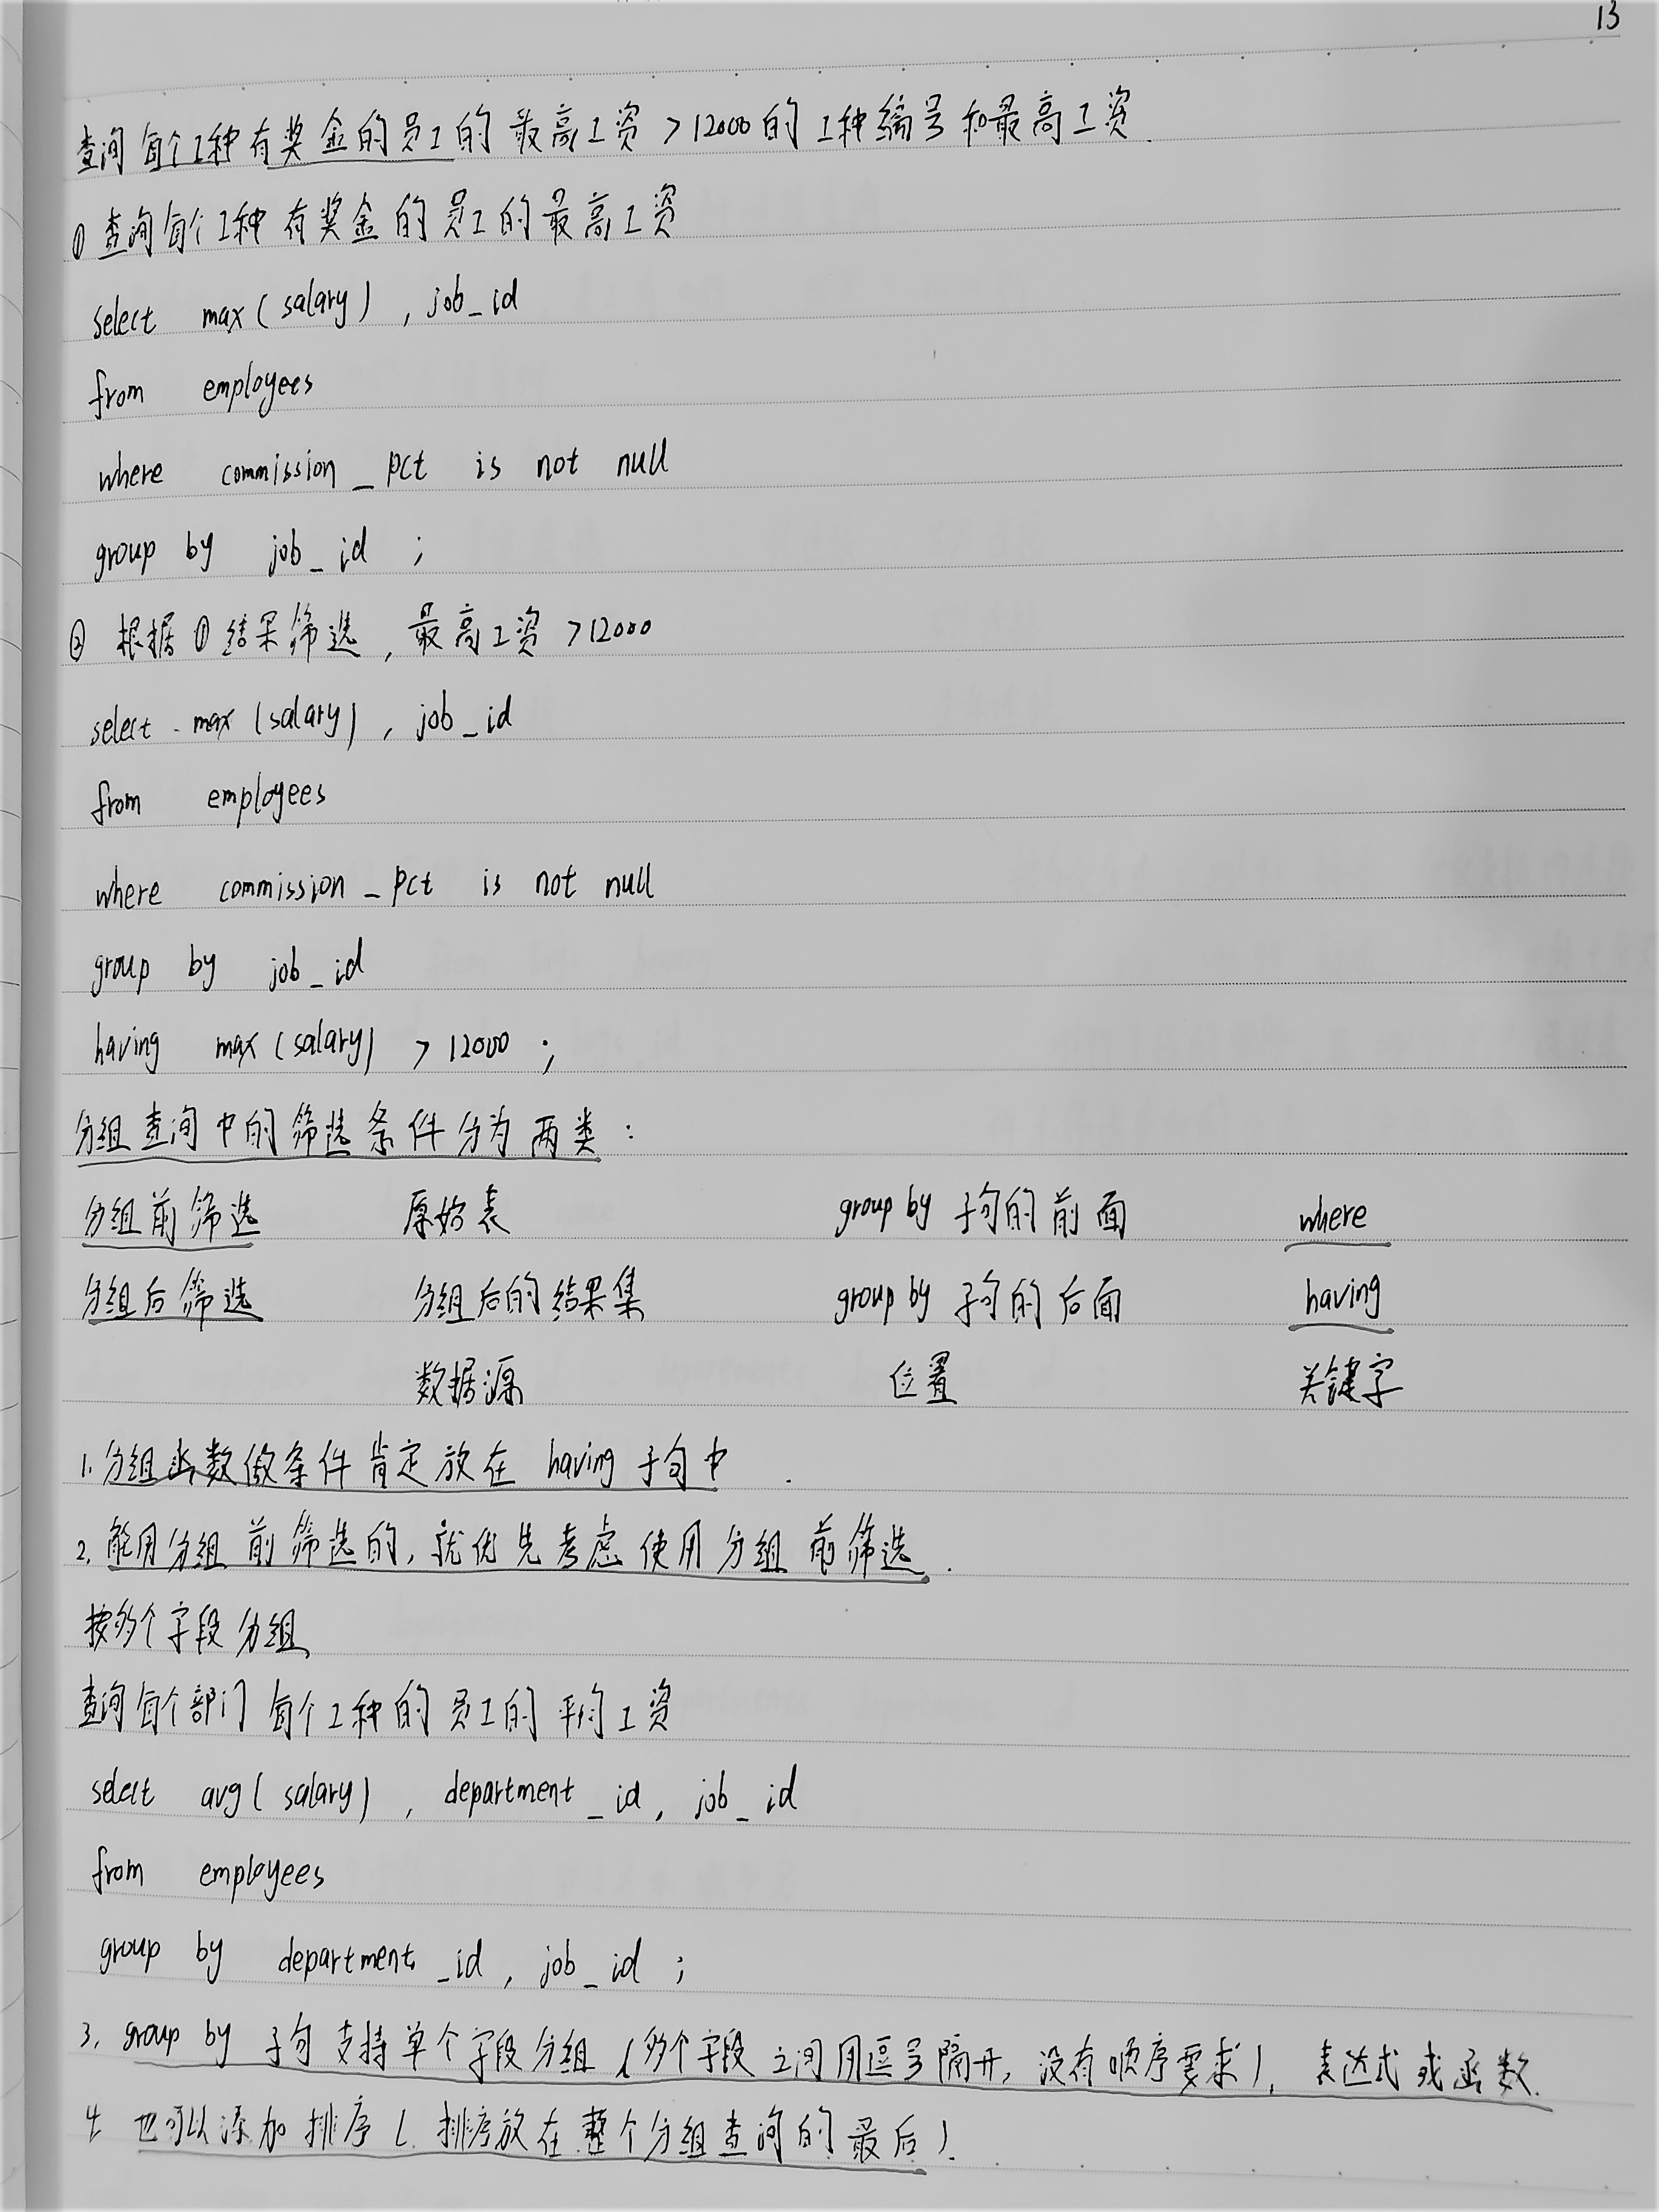 13
查询每个工种有奖金的员工的最高工资>12000的工种编号和最高工资.
① 查询每个工种有奖金的员工的最高工资
select max(salary), job_id
from employees
where commission_pct is not null
group by job_id ;
② 根据①结果筛选,最高工资>12000
select max(salary), job_id
from employees
where commission_pct is not null
group by job_id
having max(salary) > 12000 ;
分组查询中的筛选条件分为两类:
分组前筛选 原始表 group by 子句的前面 where
分组后筛选 分组后的结果集 group by 子句的后面 having
数据源 位置 关键字
1.分组函数做条件肯定放在 having 子句中.
2.能用分组前筛选的,就优先考虑使用分组前筛选.
按多个字段分组
查询每个部门每个工种的员工的平均工资
select avg(salary), department_id, job_id
from employees
group by department_id, job_id ;
3. group by 子句支持单个字段分组(多个字段之间用逗号隔开,没有顺序要求),表达式或函数.
4 也可以添加排序(排序放在整个分组查询的最后).